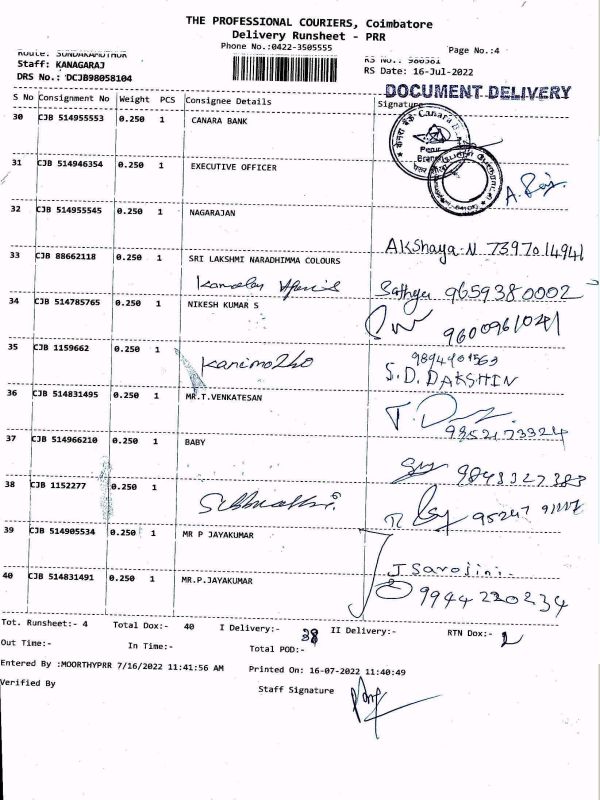 THE PROFESSIONAL COURIERS, Coimbatore
Delivery Runsheet - PRR
Phone No.:0422-3505555
Page No.:4
Route: SUNDAKAMUTHUR
Staff: KANAGARAJ
DRS No.: DCJB98058104
RS No.: 980581
RS Date: 16-Jul-2022
DOCUMENT DELIVERY
S No Consignment No Weight PCS Consignee Details Signature
30 CJB 514955553 0.250 1 CANARA BANK
31 CJB 514946354 0.250 1 EXECUTIVE OFFICER
32 CJB 514955545 0.250 1 NAGARAJAN
Akshaya.N 7397014941
33 CJB 88662118 0.250 1 SRI LAKSHMI NARADHIMMA COLOURS
Sathya 9659380002
34 CJB 514785765 0.250 1 NIKESH KUMAR S
9600961041
35 CJB 1159662 0.250 1
Kanimozho
9894401563
S.D. DAKSHIN
36 CJB 514831495 0.250 1 MR.T.VENKATESAN
9852173324
37 CJB 514966210 0.250 1 BABY
9843327383
38 CJB 1152277 0.250 1
39 CJB 514905534 0.250 1 MR P JAYAKUMAR
J Sarojini.
40 CJB 514831491 0.250 1 MR.P.JAYAKUMAR
9944220234
Tot. Runsheet:- 4 Total Dox:- 40 I Delivery:- 38 II Delivery:- RTN Dox:- 2
Out Time:- In Time:- Total POD:-
Entered By :MOORTHYPRR 7/16/2022 11:41:56 AM Printed On: 16-07-2022 11:40:49
Verified By Staff Signature